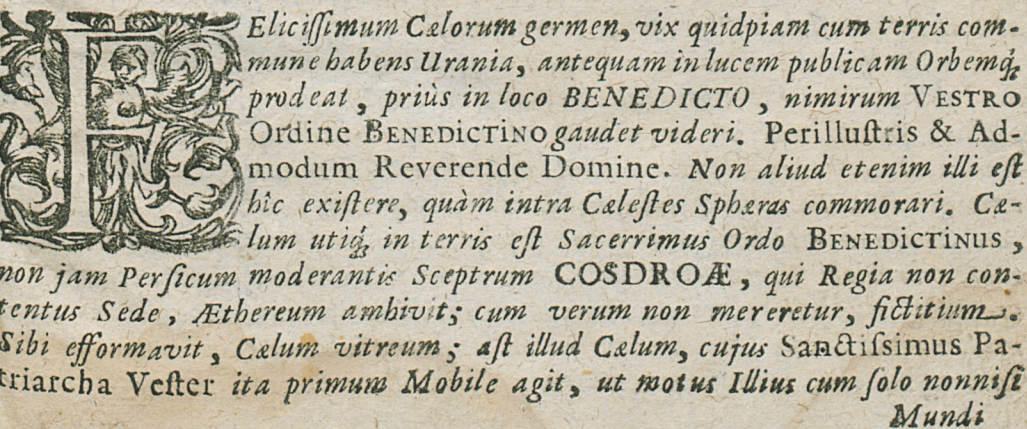 FElicissimum Cælorum germen, vix quidpiam cum terris com-
mune habens Urania, antequam in lucem publicam Orbemq́;
prodeat, priùs in loco BENEDICTO, nimirum VESTRO
Ordine BENEDICTINO gaudet videri. Perillustris & Ad-
modum Reverende Domine. Non aliud etenim illi est
hîc existere, quàm intra Cælestes Sphæras commorari. Cæ-
lum utiq́; in terris est Sacerrimus Ordo BENEDICTINUS,
non jam Persicum moderantis Sceptrum COSDROÆ, qui Regia non con-
tentus Sede, Æthereum ambivit; cum verum non mereretur, fictitium.
Sibi efformavit, Cælum vitreum; ast illud Cælum, cujus Sanctissimus Pa-
triarcha Vester ita primum Mobile agit, ut motus Illius cum solo nonnisi
Mundi